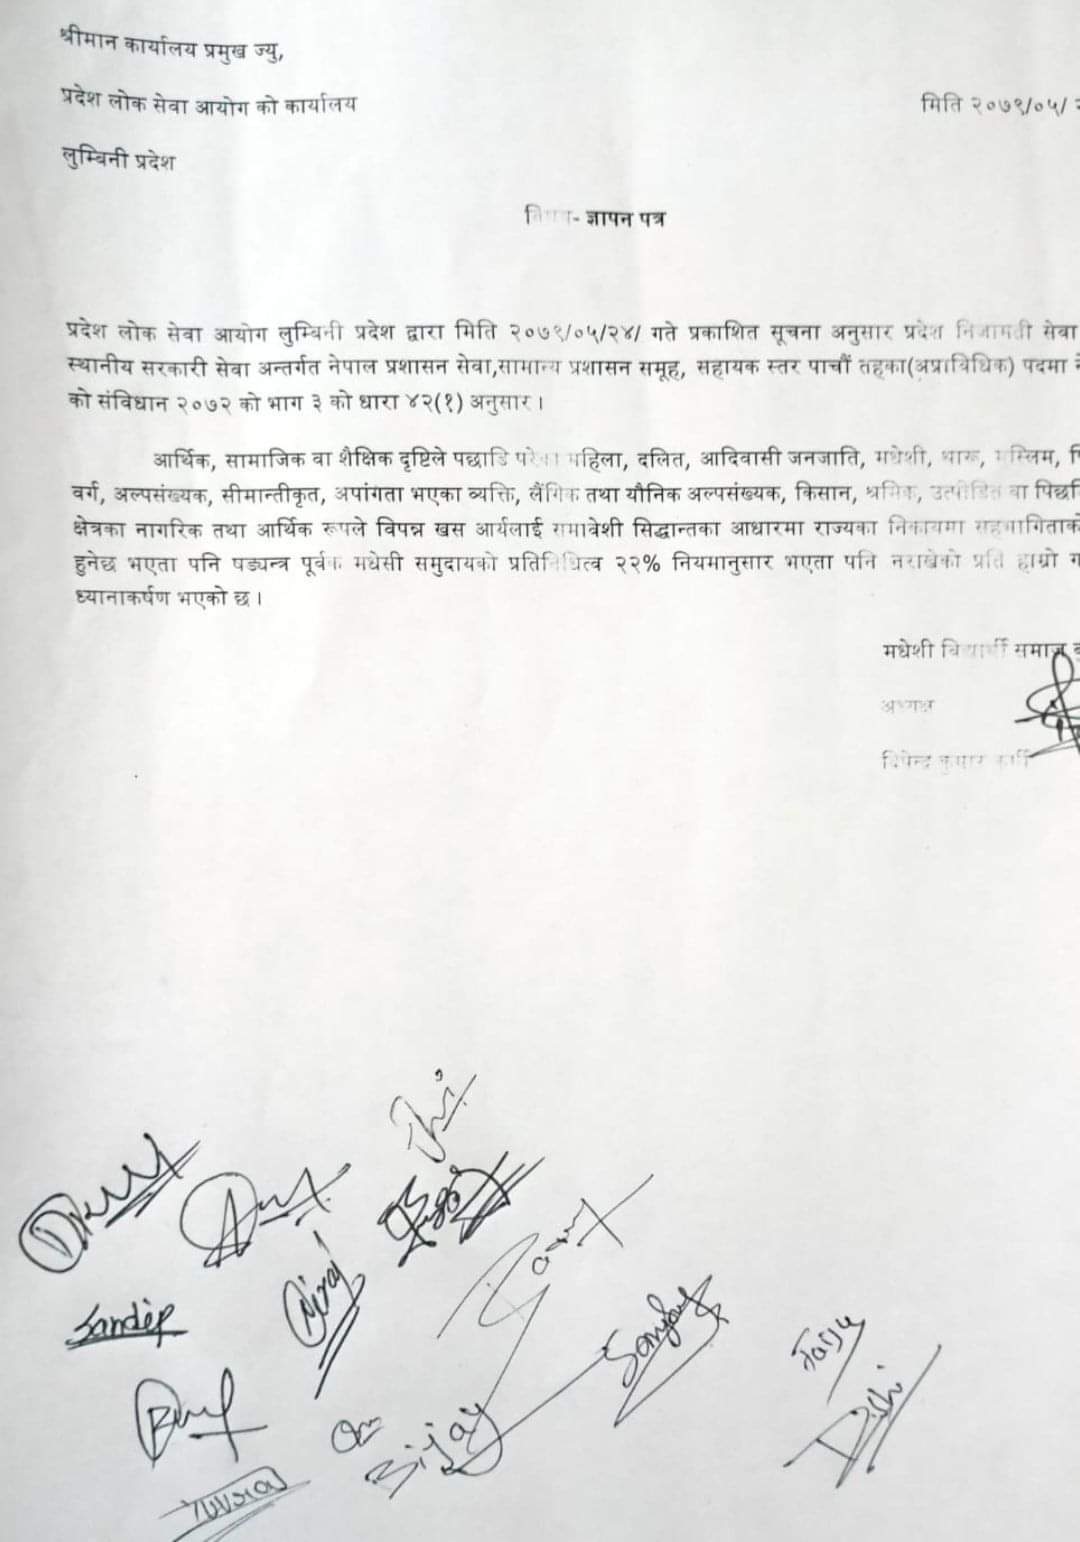 श्रीमान कार्यालय प्रमुख ज्यु,
प्रदेश लोक सेवा आयोग को कार्यालय
मिति २०७९/०५/
लुम्बिनी प्रदेश
विषय- ज्ञापन पत्र
प्रदेश लोक सेवा आयोग लुम्बिनी प्रदेश द्वारा मिति २०७९/०५/२४/ गते प्रकाशित सूचना अनुसार प्रदेश निजामती सेवा
स्थानीय सरकारी सेवा अन्तर्गत नेपाल प्रशासन सेवा,सामान्य प्रशासन समूह, सहायक स्तर पाचौं तहका(अप्राविधिक) पदमा
को संविधान २०७२ को भाग ३ को धारा ४२(१) अनुसार ।
आर्थिक, सामाजिक वा शैक्षिक दृष्टिले पछाडि परेका महिला, दलित, आदिवासी जनजाति, मधेशी, थारू, मुस्लिम,
वर्ग, अल्पसंख्यक, सीमान्तीकृत, अपांगता भएका व्यक्ति, लैंगिक तथा यौनिक अल्पसंख्यक, किसान, श्रमिक, उत्पीडित वा
क्षेत्रका नागरिक तथा आर्थिक रूपले विपन्न खस आर्यलाई समावेशी सिद्धान्तका आधारमा राज्यका निकायमा सहभागिताको
हुनेछ भएता पनि षड्यन्त्र पूर्वक मधेसी समुदायको प्रतिनिधित्व २२% नियमानुसार भएता पनि नराखेको प्रति हाम्रो
ध्यानाकर्षण भएको छ ।
मधेशी विद्यार्थी समाज
अध्यक्ष
दिपेन्द्र कुमार
Sandip
Niraj
Sanjay
Bijay
Om
Rishi